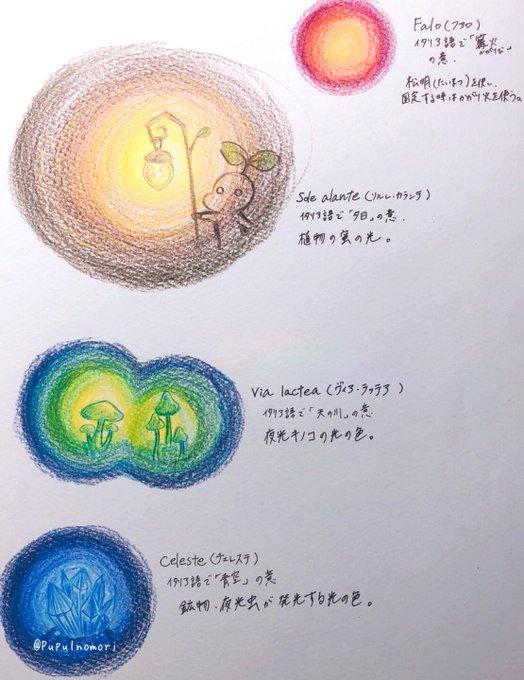 Falo (ファロ)
イタリア語で「篝火
かがりび」
の意.
松明(たいまつ)を使い、
固定する時はかがり火を使う。
Sole alante (ソルレ・カランテ)
イタリア語で「夕日」の意.
植物の蜜の光。
Via lactea (ヴィア・ラッテア)
イタリア語で「天の川」の意
夜光キノコの光の色。
Celeste (チェレステ)
イタリア語で「青空」の意
鉱物・夜光虫が発光する光の色。
@PuPuInomori